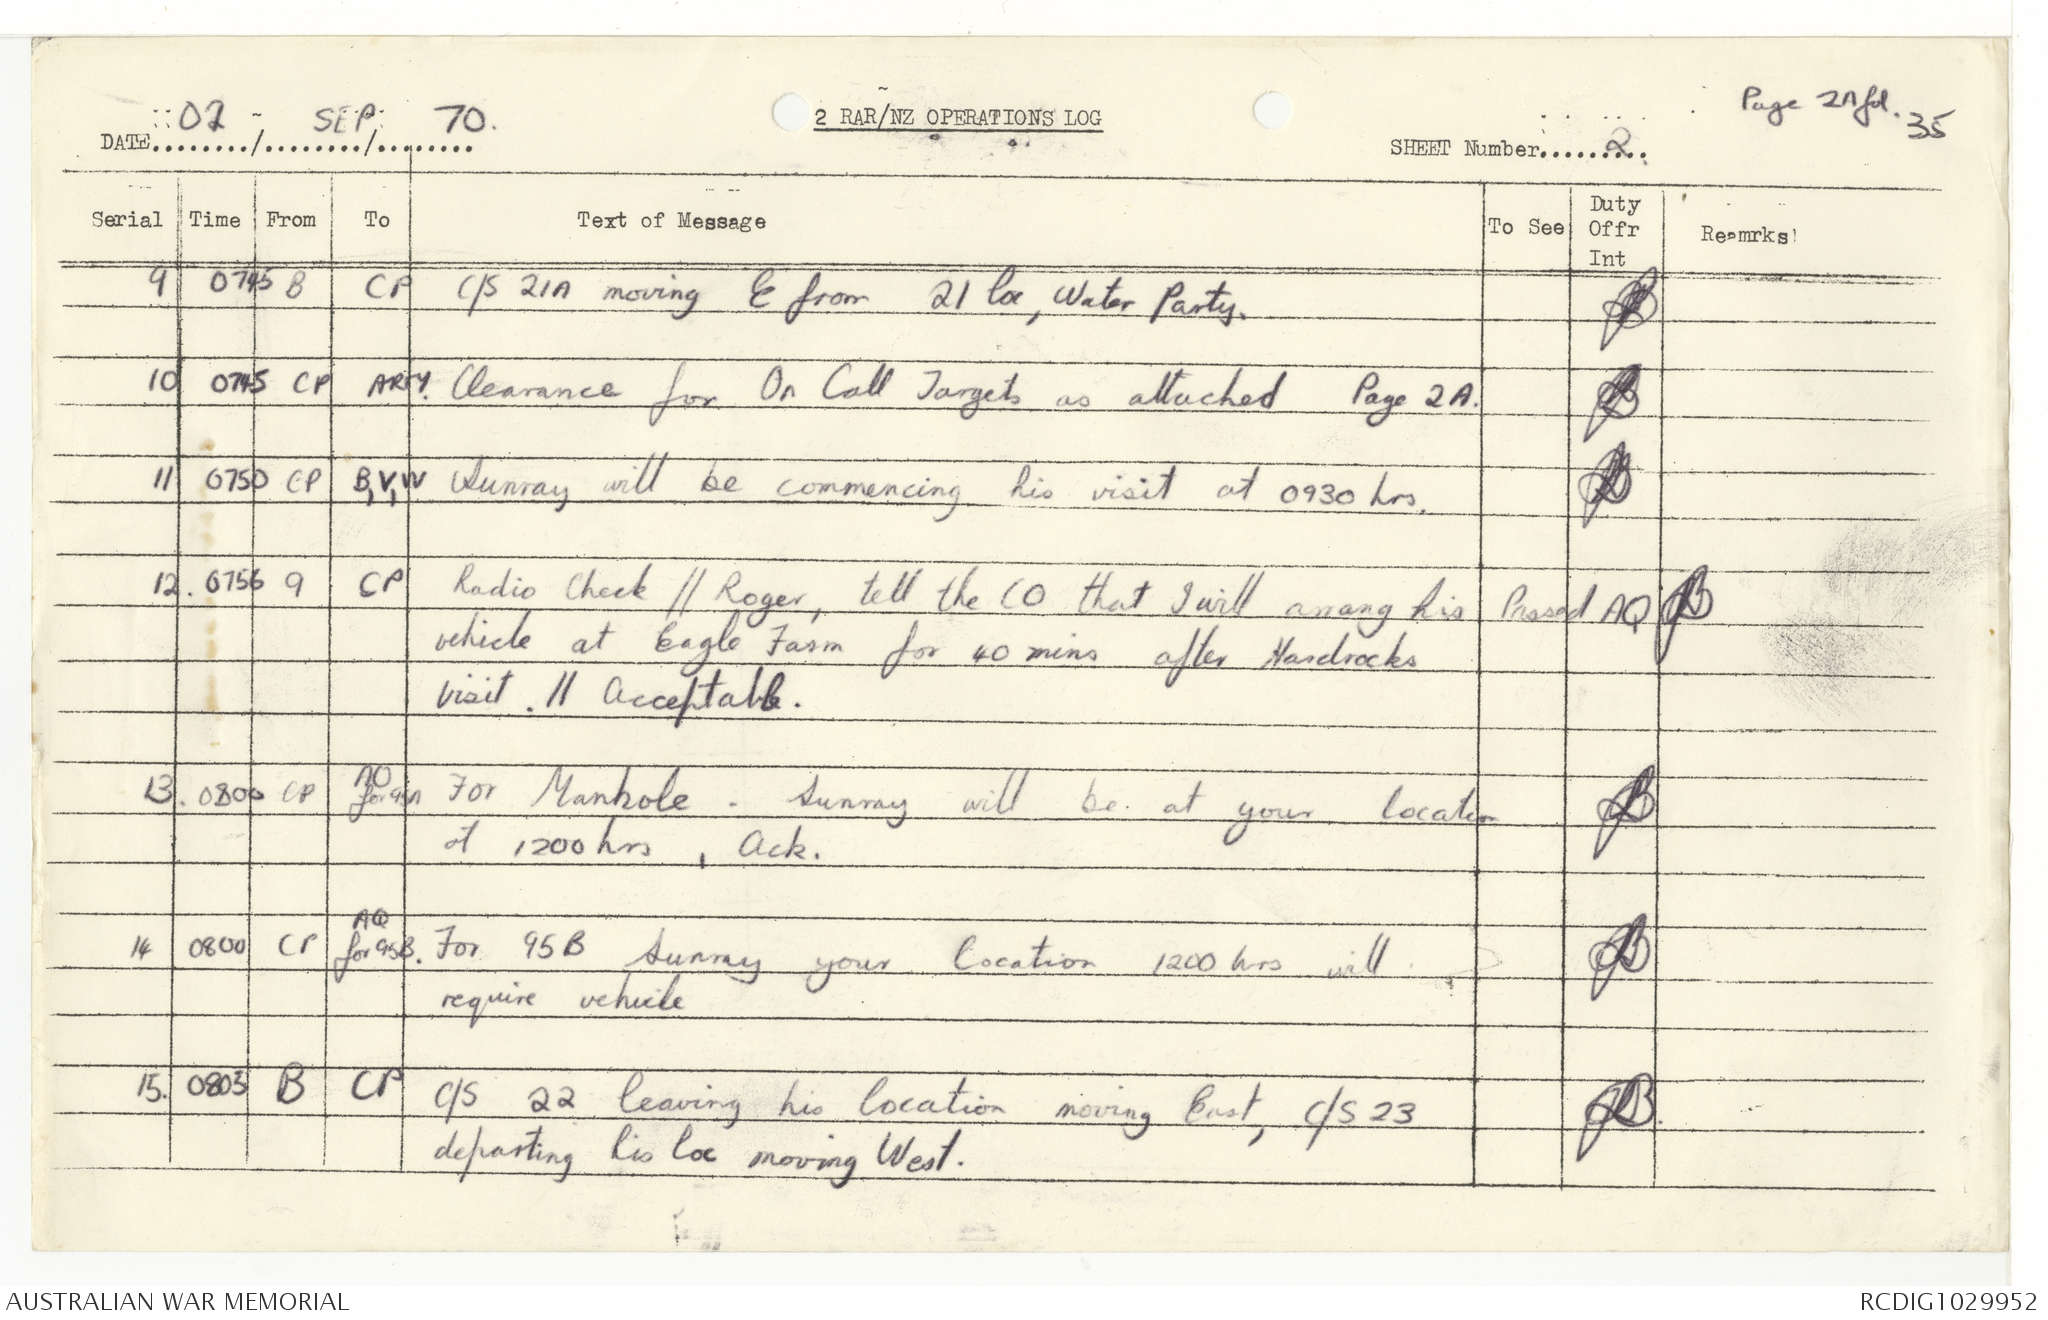 Page 2A fol. 35
DATE 02 / SEP / 70.
2 RAR/NZ OPERATIONS LOG
SHEET Number 2
Serial Time From To Text of Message To See Duty Offr Int Remrks
9 0745 B CP C/S 21A moving E from 21 loc, Water Party.
10 0745 CP ARTY. Clearance for On Call Targets as attached Page 2A.
11 0750 CP B,V,W Sunray will be commencing his visit at 0930 hrs.
12. 0756 9 CP Radio Check // Roger, tell the CO that I will arrang his Passed AQ
vehicle at Eagle Farm for 40 mins after Hardrocks
visit . // Acceptable.
13. 0800 CP AQ for 95A For Manhole - Sunray will be at your location
at 1200 hrs , Ack.
14 0800 CP AQ for 95B. For 95B Sunray your location 1200 hrs will
require vehicle
15. 0803 B CP C/S 22 leaving his location moving East, C/S 23
departing his loc moving West.
AUSTRALIAN WAR MEMORIAL
RCDIG1029952